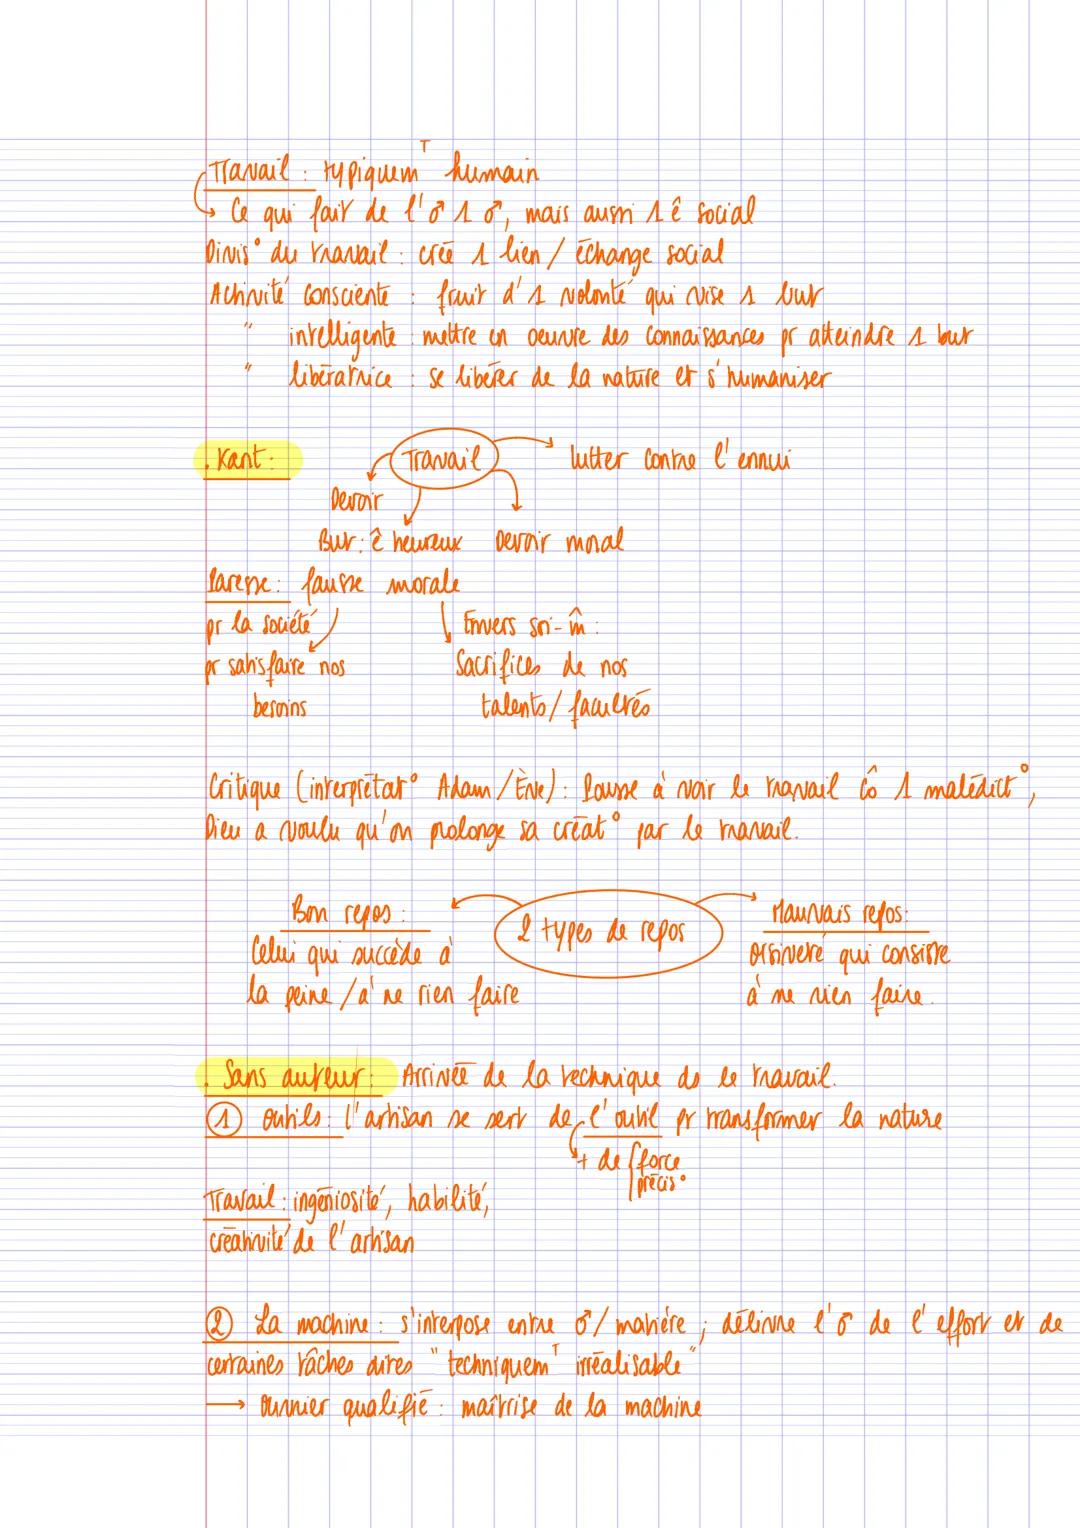 Travail : typiquem^T humain
→ Ce qui fait de l'♂ 1 ♂, mais aussi 1 ê social
Divis° du travail : créé 1 lien / échange social
Activité consciente : fruit d'1 volonté qui vise 1 but
" intelligente : mettre en oeuvre des connaissances pr atteindre 1 but
" libératrice : se libérer de la nature et s'humaniser
. Kant :
Travail
→ lutter contre l'ennui
Devoir
But : ê heureux
Devoir moral
Paresse : fausse morale
pr la société
pr satisfaire nos
besoins
Envers soi-m̂ :
Sacrifices de nos
talents / facultés
Critique (interprétat° Adam / Ève) : Pousse à voir le travail cô 1 malédict°,
Dieu a voulu qu'on prolonge sa créat° par le travail.
2 types de repos
Bon repos :
Celui qui succède à
la peine / à ne rien faire
Mauvais repos :
oisiveté qui consiste
à ne rien faire.
. Sans auteur : Arrivée de la technique ds le travail.
① Outils : l'artisan se sert de l'outil pr transformer la nature
→ + de { force
précis°
Travail : ingéniosité, habilité,
créativité de l'artisan
② La machine : s'interpose entre ♂ / matière ; délivre l'♂ de l'effort et de
certaines tâches dites "techniquem^T irréalisable"
→ Ouvrier qualifié : maîtrise de la machine